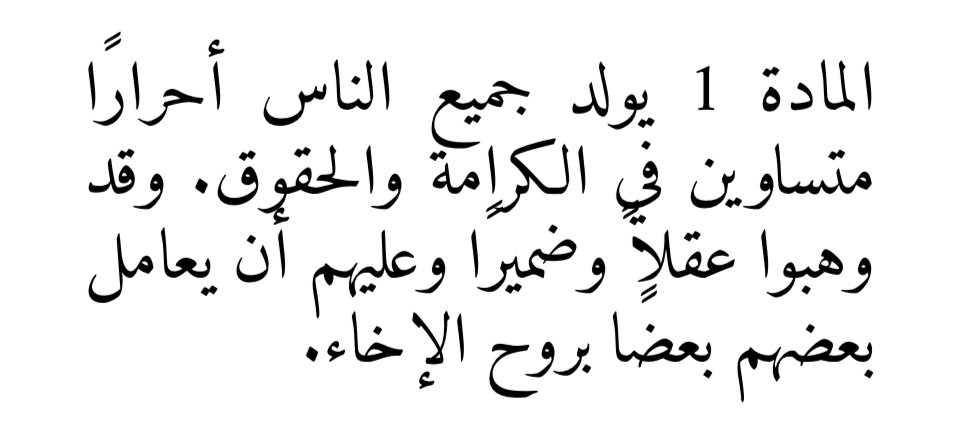 المادة 1 يولد جميع الناس أحرارًا
متساوين في الكرامة والحقوق. وقد
وهبوا عقلاً وضميرًا وعليهم أن يعامل
بعضهم بعضا بروح الإخاء.